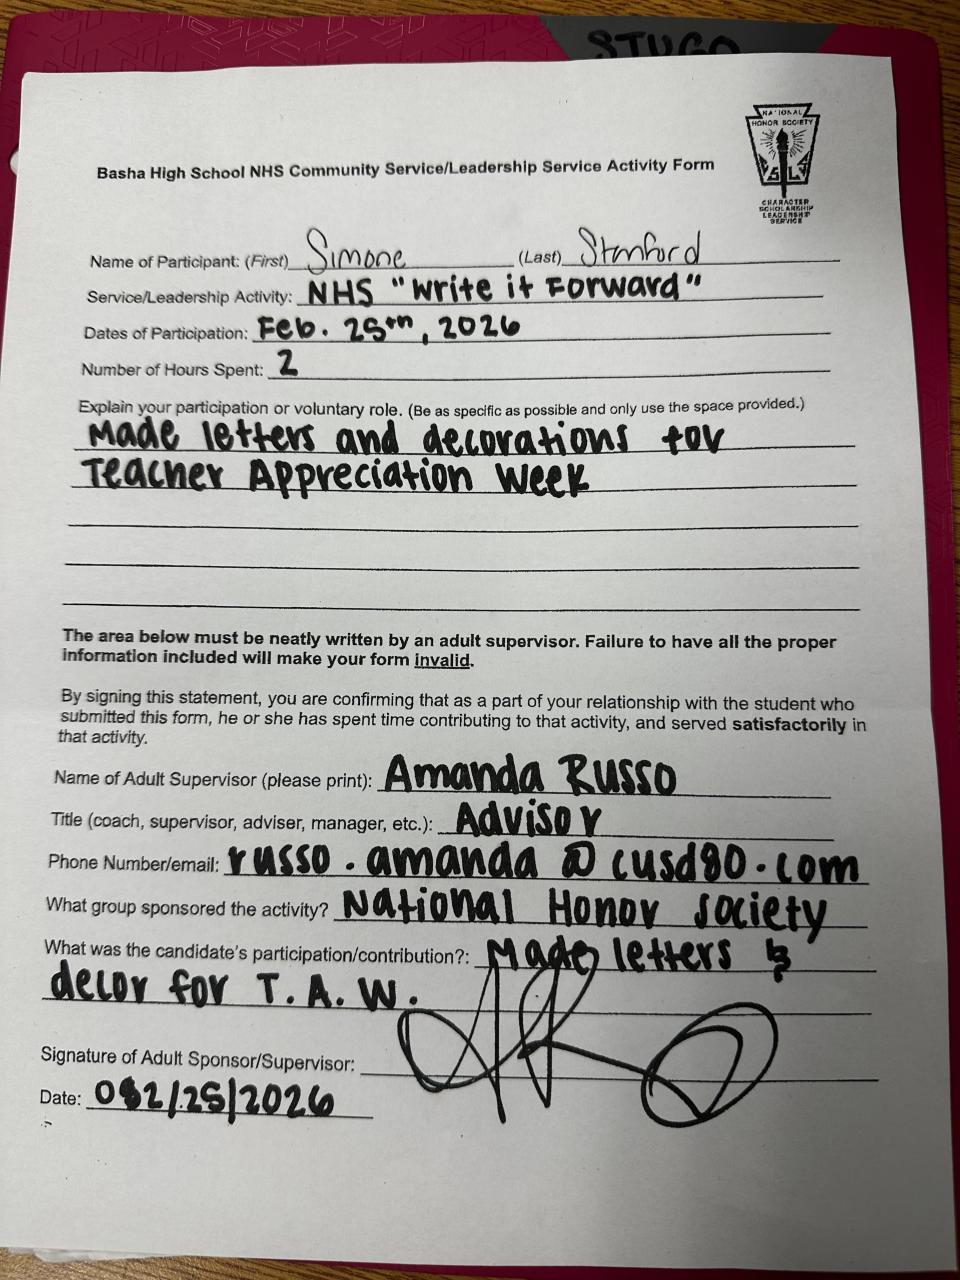 STUGO
NATIONAL
HONOR SOCIETY
S L
CHARACTER
SCHOLARSHIP
LEADERSHIP
SERVICE
Basha High School NHS Community Service/Leadership Service Activity Form
Name of Participant: (First) Simone (Last) Stanford
Service/Leadership Activity: NHS "Write it Forward"
Dates of Participation: Feb. 25th, 2026
Number of Hours Spent: 2
Explain your participation or voluntary role. (Be as specific as possible and only use the space provided.)
Made letters and decorations for
Teacher Appreciation Week
The area below must be neatly written by an adult supervisor. Failure to have all the proper
information included will make your form invalid.
By signing this statement, you are confirming that as a part of your relationship with the student who
submitted this form, he or she has spent time contributing to that activity, and served satisfactorily in
that activity.
Name of Adult Supervisor (please print): Amanda Russo
Title (coach, supervisor, adviser, manager, etc.): Advisor
Phone Number/email: russo.amanda@cusd80.com
What group sponsored the activity? National Honor Society
What was the candidate's participation/contribution?: Made letters &
decor for T.A.W.
Signature of Adult Sponsor/Supervisor:
Date: 02/25/2026